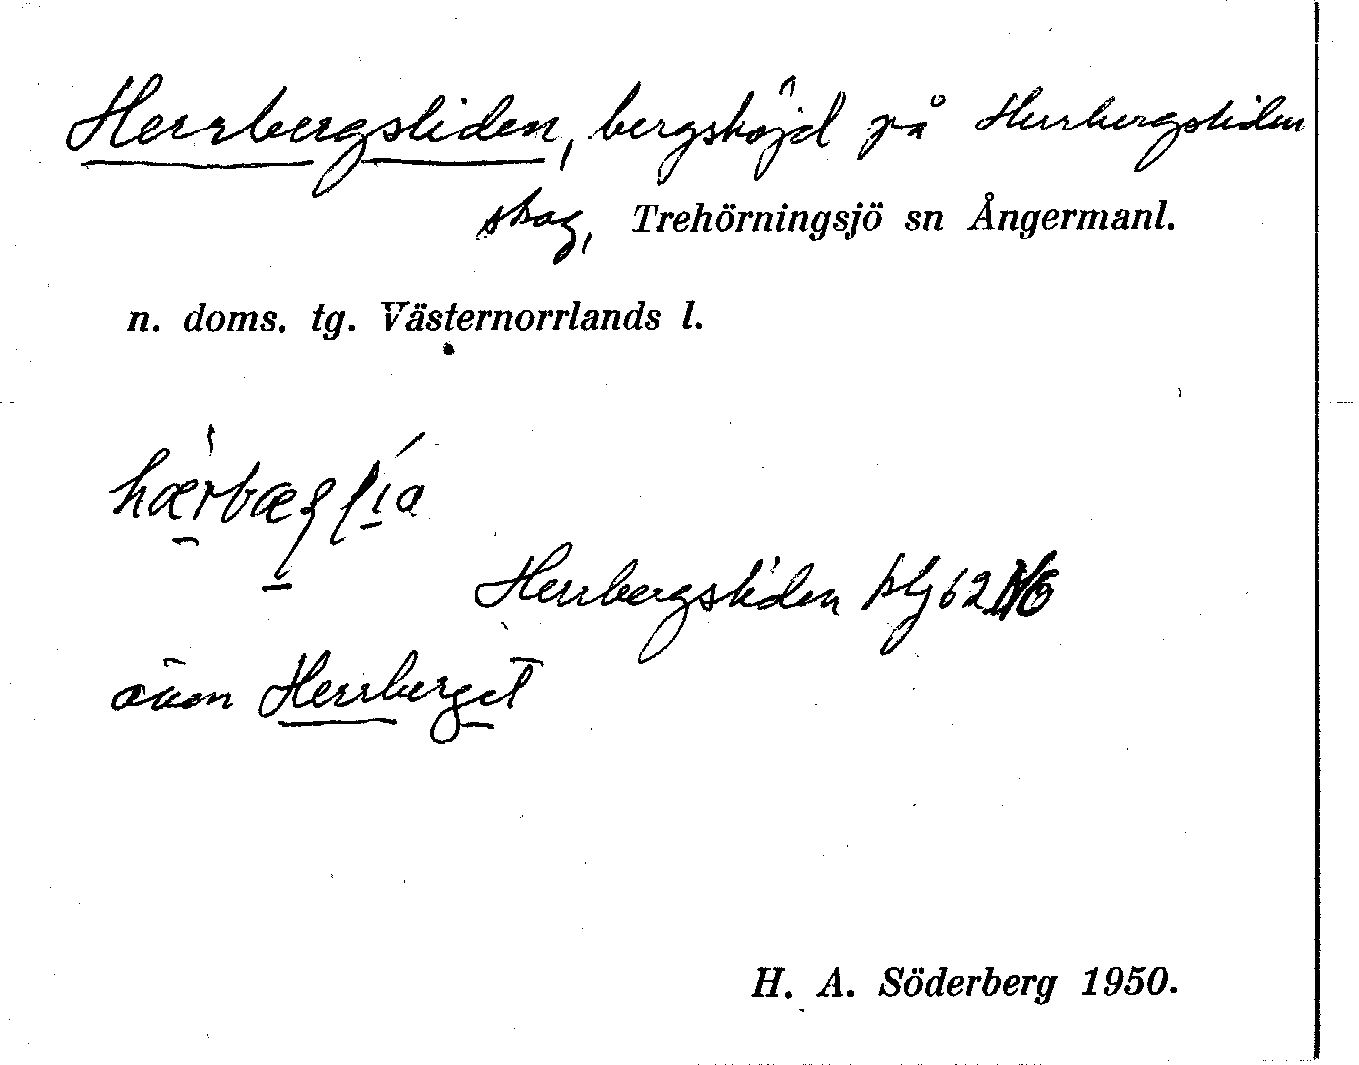 Herrbergsliden, bergshöjd på Herrbergsliden
skog, Trehörningsjö sn Ångermanl.
n. doms. tg. Västernorrlands l.
Herrbergsliden klj 62
även Herrberget
H. A. Söderberg 1950.